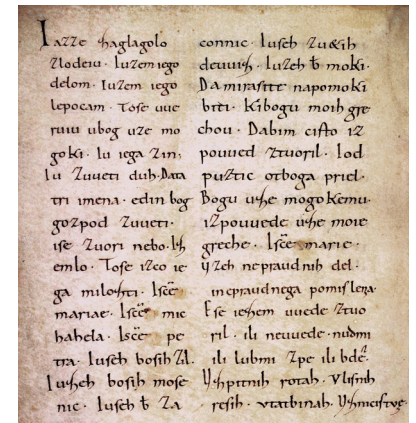 Iazze zaglagolo
zlodeiu. Iuzem iego
delom. Iuzem iego
lepocam. Tose uue
ruiu ubog uze mo
goki. Iu iega zin.
Iu zuueti duh. Data
tri imena. edin bog
gozpod zuueti.
ise zuori nebo. Iz
emlo. Tose izco ie
ga milozti. Iscē
mariae. Iscē mic
hahela. Iscē pe
tra. Iuseh bosih zil.
Iuzeh bosih mose
nic. Iuseh b̄ za
connic. Iuseh zuetih
deuuiz. Iuzeh b̄ moki.
Da mirasite napomoki
biti. Kibogu moih gre
chou. Dabim cisto iz
pouued ztuoril. Iod
puztic otboga priel.
Bogu uze mogokemu.
izpouuede uze moie
greche. Iscē marie.
Uzeh nepraudnih del.
inepraudnega pomislera.
Ese iezem uuede ztuo
ril. ili neuuede. nudmi
ili lubmi zpe ili bdē.
Uzpitnih rotah. Vlisnih
resih. Vtatbinah. Uzmcistue.